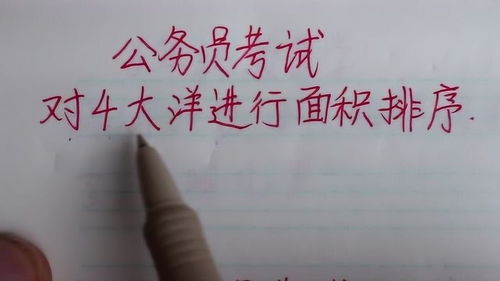 公务员考试
对4大洋进行面积排序.